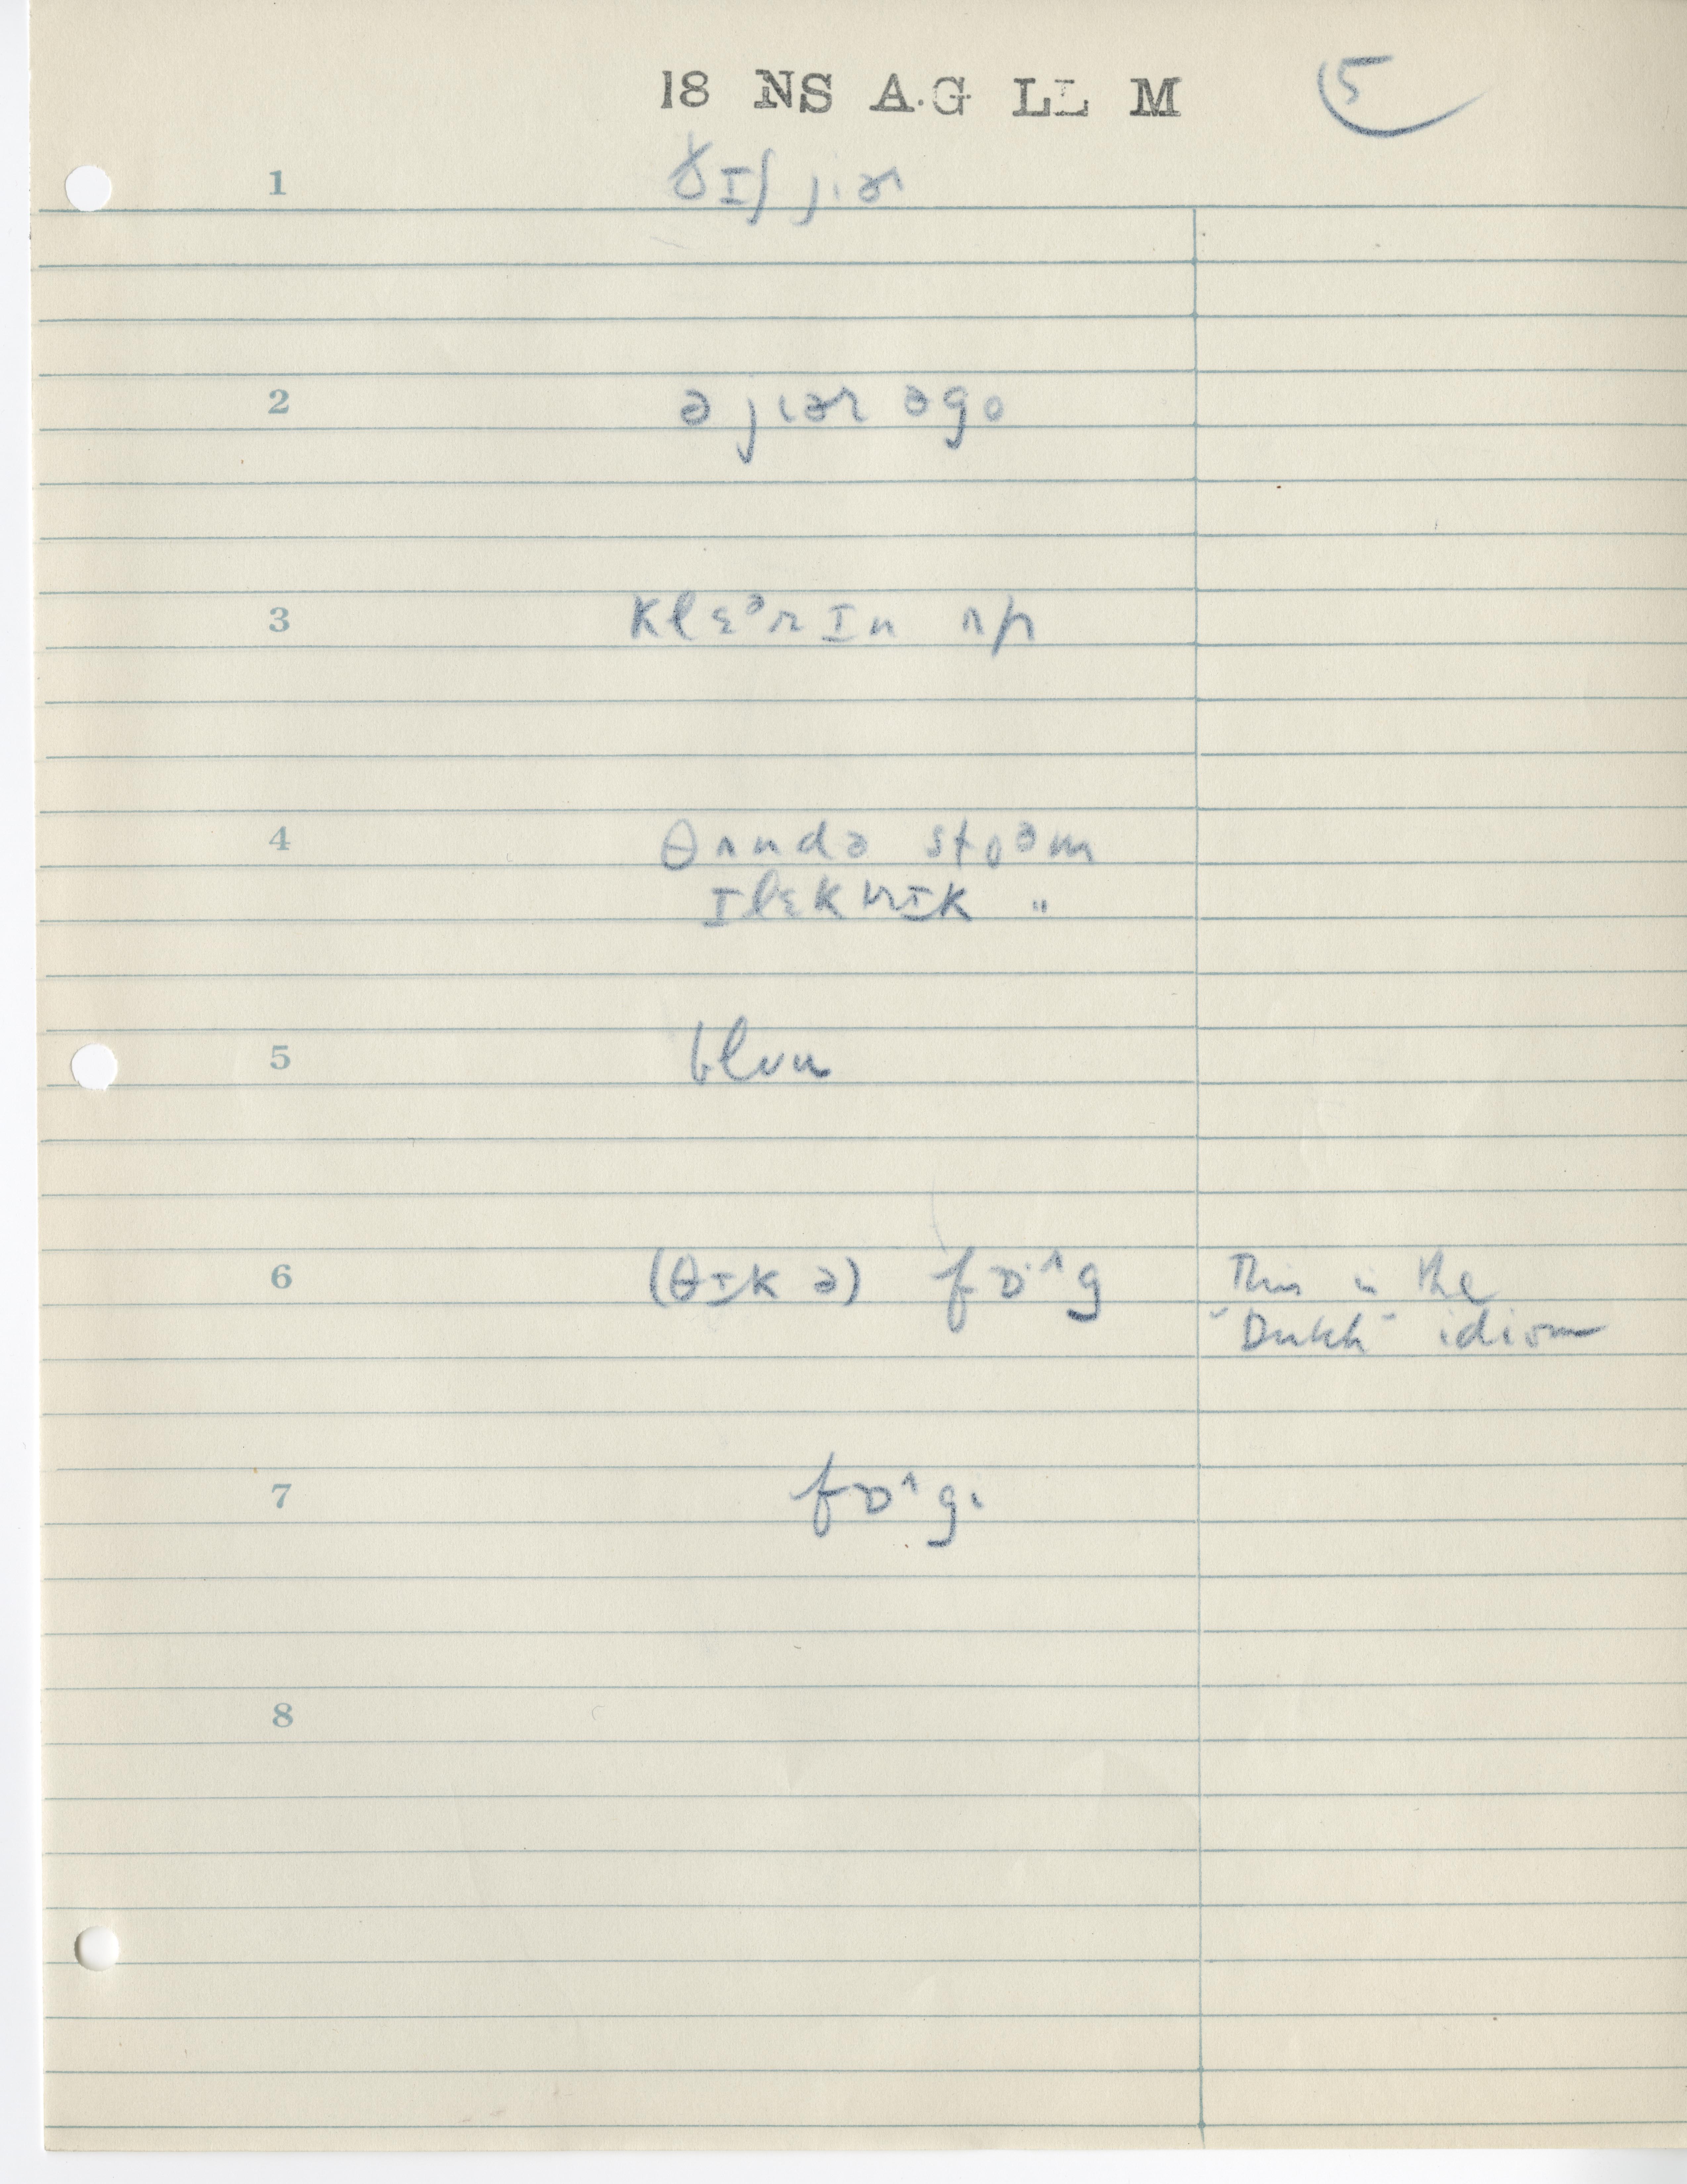 18 NS A.G LL M 5
1 ðɪʃ jiɚ
2 ə jɩər əgo
3 klɛᵊrɪn ʌp
4 θʌndə stoᵊm
ɪlɛktrɪk "
5
6 (θɪk ə) fɒᶺg This is the
"Dutch" idiom
7 fɒᶺgɩ
8